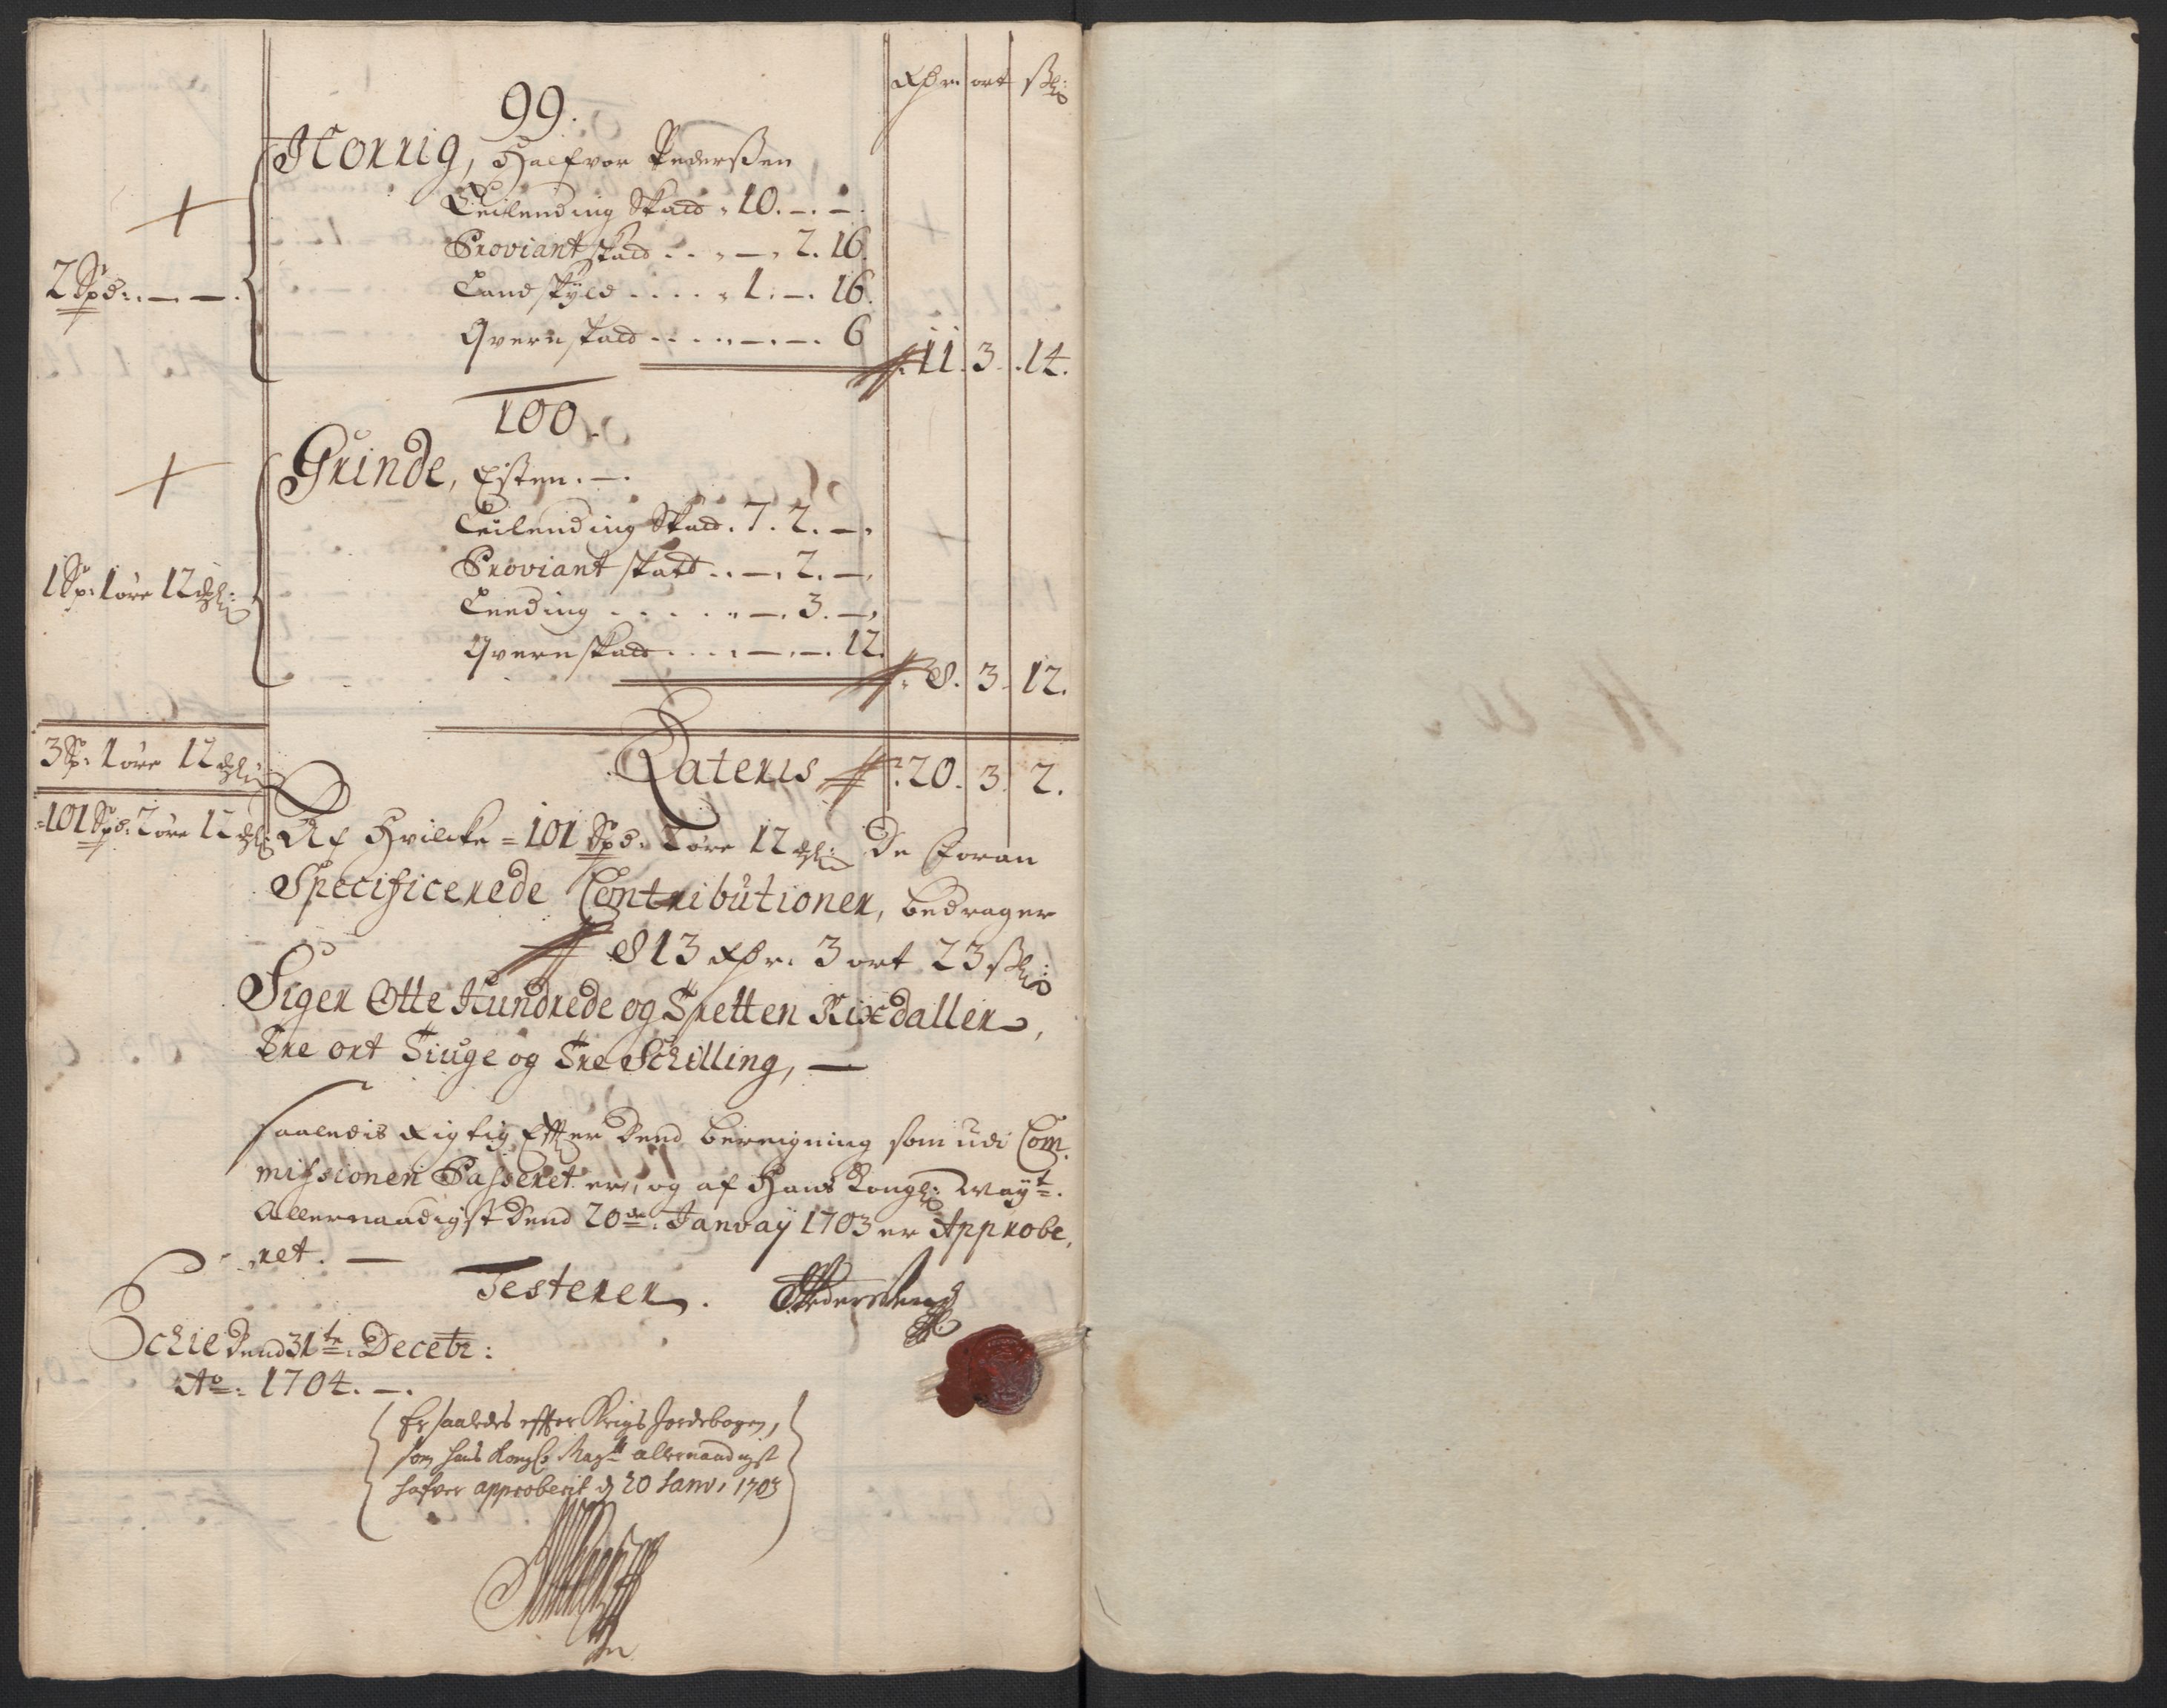 Rdr. ort ß:
99.
Hornig, Halfvor Pederßen
+
Leilending Skatt . 10. –. –.
Proviant skatt . . . –. 2. 16.
2 Spd: . – –.
Landskyld . . . . . 1. –. 16.
Qvernskatt . . . . . –. –. 6
11. 3. 14.
100.
Grinde, Esten. –.
+
Leilending Skatt. 7. 2. –.
Proviant skatt . . –. 2. –.
1 Sp: 1 øre 12 d:
Leeding . . . . . . –. 3. –.
Qvernskatt . . . . –. –. 12.
8. 3. 12.
3 Sp: 1 øre 12 d:
Lateris 20. 3. 2.
101 Spd: 2 øre 12 d:
Af Hvilcke = 101 Spd: 2 øre 12 d: De Foran
Specificerede Contributioner, bedrager
813 Rdr. 3 ort 23 ß:
Siger Otte Hundrede og Tretten Rixdaller,
Tre ort Tiuge og Tre Schilling, —
Saaledis Rigtig Efter Dend bereigning som udi Com-
missionen Passeret er, og af Hans Kongl: Mayt.
Allernaadigst Dend 20de. Janvaÿ 1703 er Approbe,
,ret. —
Testerer.
Schie Dend 31te. Decebr:
Ao: 1704. –.
Er saaledes effter Krigs Jordebogen,
som hans Kongl: Mayt allernaadigst
hafver approberit d 20 Janv: 1703